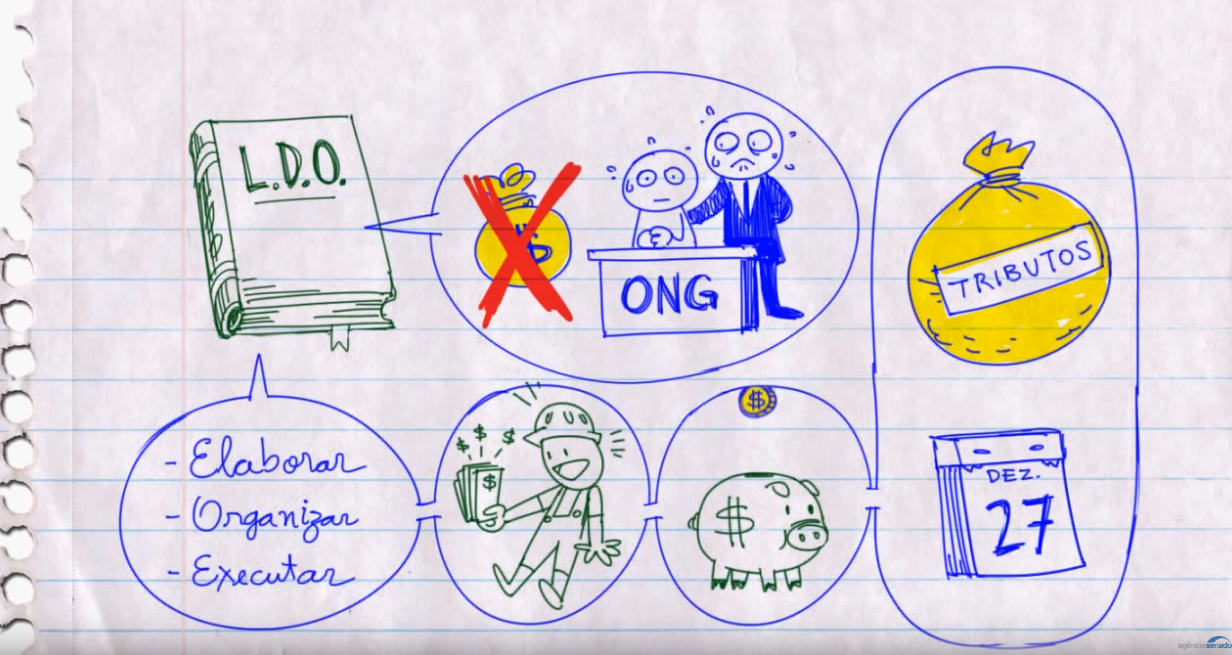 L.D.O.
$
ONG
TRIBUTOS
- Elaborar
- Organizar
- Executar
$ $ $
$
$
$
DEZ.
27
agênciasenado